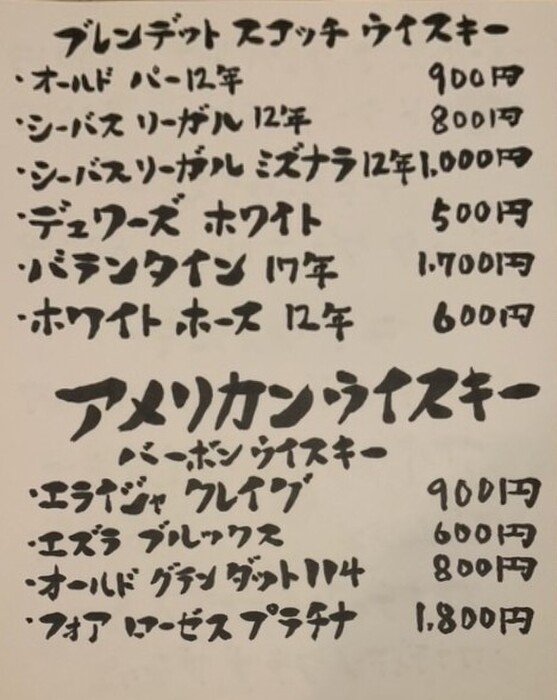 ブレンデット スコッチ ウイスキー
・オールド パー12年 900円
・シーバス リーガル 12年 800円
・シーバスリーガル ミズナラ12年1.000円
・デュワーズ ホワイト 500円
・バランタイン 17年 1.700円
・ホワイト ホース 12年 600円
アメリカンウイスキー
バーボン ウイスキー
・エライジャ クレイグ 900円
・エズラ ブルックス 600円
・オールド グランダット114 800円
・フォア ローゼス プラチナ 1.800円